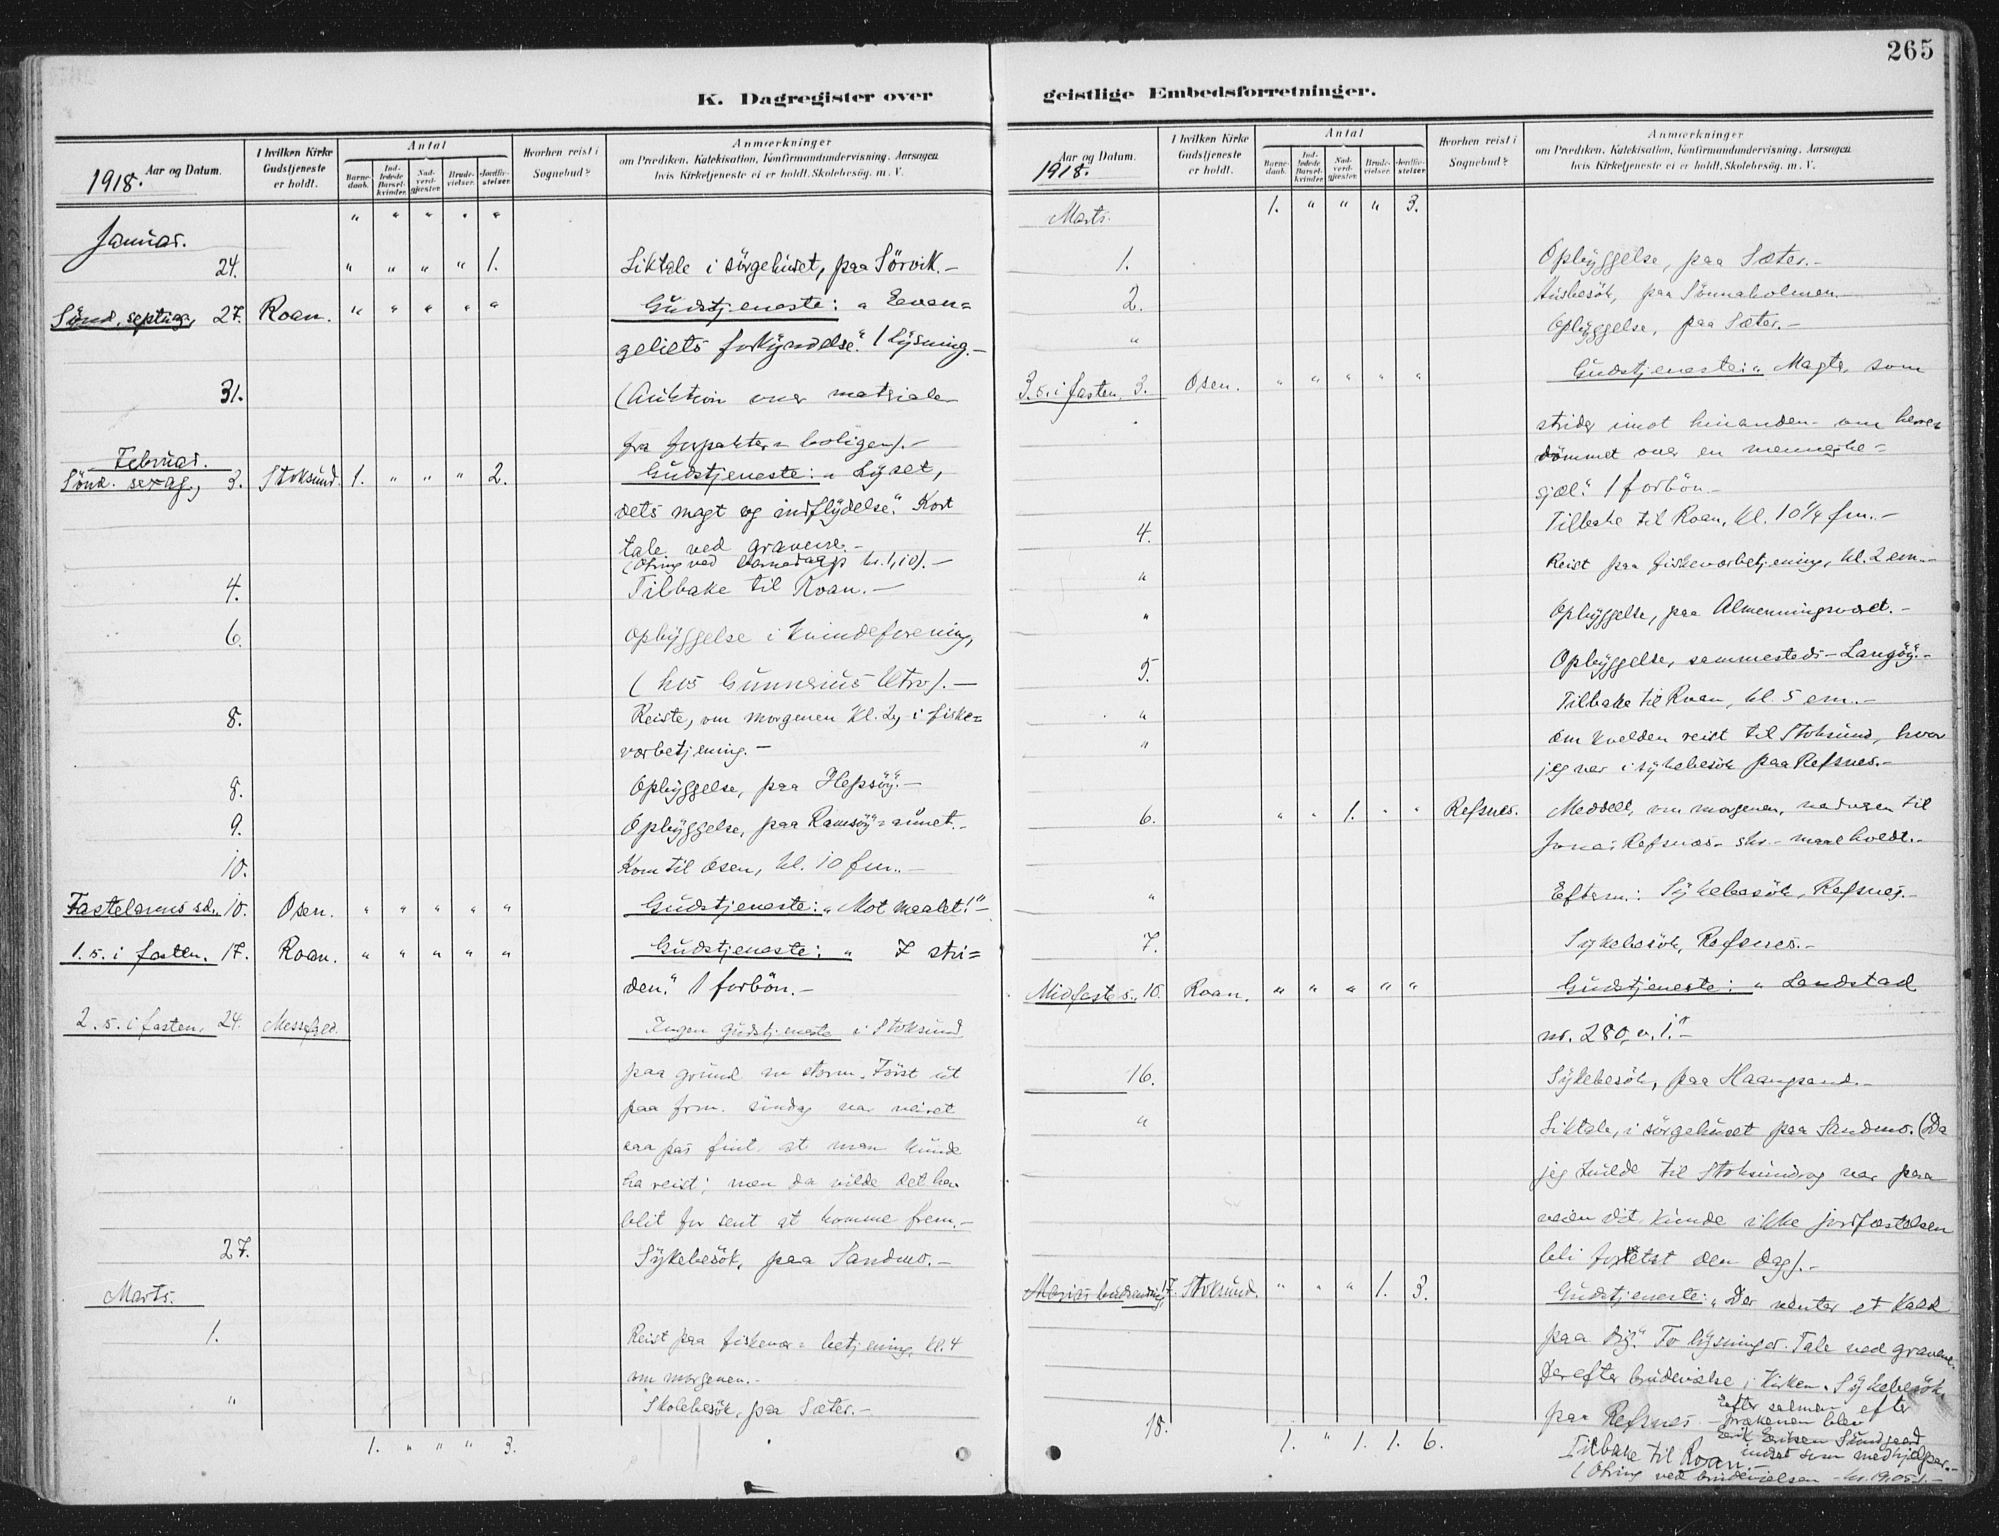 265
K. Dagregister over
geistlige Embedsforretninger.
Aar og Datum.
1918.
I hvilken Kirke Gudstjeneste er holdt.
Antal
Barne-daab.
Ind-ledede Barsel-kvinder.
Nad-verd-gjæster.
Brude-vielser.
Jordfæ-stelser.
Hvorhen reist i Sognebud?
Anmærkninger
om Prædiken, Katekisation, Konfirmandundervisning, Aarsagen
hvis Kirketjeneste ei er holdt, Skolebesøg, m. V.
" " " " "
Januar.
24. " " " " 1. Liktale i sörgehuset, paa Sörvik.-
Sönd. septuag. 27. Roan. " " " " " Gudstjeneste: " Evan=
geliets forkyndelse." 1 lysning.-
31. (Auktion over materialer
fra forpakter = boligen).-
Februar.
Sönd. sexag. 3. Stoksund. 1. " " " 2. Gudstjeneste: " Lyset,
dets magt og indflydelse." Kort
tale ved gravene.-
(Ofring ved barnedaap kr. 1,10).-
4. Tilbake til Roan.-
6. Opbyggelse i kvindeforening,
(hos Gunnerius Utro).-
8. Reiste, om morgenen kl. 2, i fiske=
værbetjening.-
8. Opbyggelse, paa Hepsöy.-
9. Opbyggelse, paa Ramsöy=sundet.-
10. Kom til Osen, kl. 10 fm.-
Fastelavns sd. 10. Osen. " " " " " Gudstjeneste: " Mot maalet!"-
1. s. i fasten. 17. Roan. " " " " " Gudstjeneste: " I stri=
den." 1 forbön.-
2. s. i fasten. 24. Messefald. Ingen gudstjeneste i Stoksund
paa grund av storm. Först ut
paa frm. söndag var veiret
saa pas fint, at man kunde
ha reist; men da vilde det ha
blit for sent at komme frem.-
27. Sykebesök, paa Sandmo.-
Marts.
1. Reist paa fiskevær=betjening, kl. 4
om morgenen.-
" Skolebesök, paa Sæter.-
1. " " " 3.
Aar og Datum.
1918.
I hvilken Kirke Gudstjeneste er holdt.
Antal
Barne-daab.
Ind-ledede Barsel-kvinder.
Nad-verd-gjæster.
Brude-vielser.
Jordfæ-stelser.
Hvorhen reist i Sognebud?
Anmærkninger
om Prædiken, Katekisation, Konfirmandundervisning, Aarsagen
hvis Kirketjeneste ei er holdt, Skolebesög, m. V.
Marts. 1. " " " 3.
1. Opbyggelse, paa Sæter.-
2. Husbesök, paa Sönnaholmen.-
" Opbyggelse, paa Sæter.-
3. s. i fasten. 3. Osen. " " " " " Gudstjeneste: " Magter, som
strider imot hinanden om herre=
dömmet over en menneske=
sjæl." 1 forbön.-
4. Tilbake til Roan, kl. 10 1/4 fm.-
" Reist paa fiskeværbetjening, kl. 2 em.-
" Opbyggelse, paa Almenningsværet.-
5. Opbyggelse, sammesteds - Langöy.-
" Tilbake til Roan, kl. 5 em.-
" Om kvelden reist til Stoksund, hvor
jeg var i sykebesök paa Refsnes.-
6. " " 1. " " Refsnes. Meddelt, om morgenen, nadveren til
Jonas Refsnæs
" Efterm.: Sykebesök, Refsnes.-
7. Sykebesök, Refsnes.-
Midfaste s. 10. Roan. " " " " " Gudstjeneste: " Landstad
nr. 280, v. 1."-
16. Sykebesök, paa Haangsand.-
" Liktale, i sörgehuset paa Sandmo. (Da
jeg skulde til Stoksund og var paa
veien dit, kunde ikke jordfæstelsen
bli forrettet den dag).-
Mariæ budsendag, 17. Stoksund. " " " 1. 3. Gudstjeneste: " Der venter et kald
paa dig." To lysninger. Tale ved gravene.
Derefter brudevielse i kirken. Sykebesök
paa Refsnes.-
Efter salmen efter
prækenen blev
Erik Eriksen Sundgaard
indsat som medhjelper.-
18. Tilbake til Roan.-
(Ofring ved brudevielsen - kr. 19,05).-
1. " 1. 1. 6.